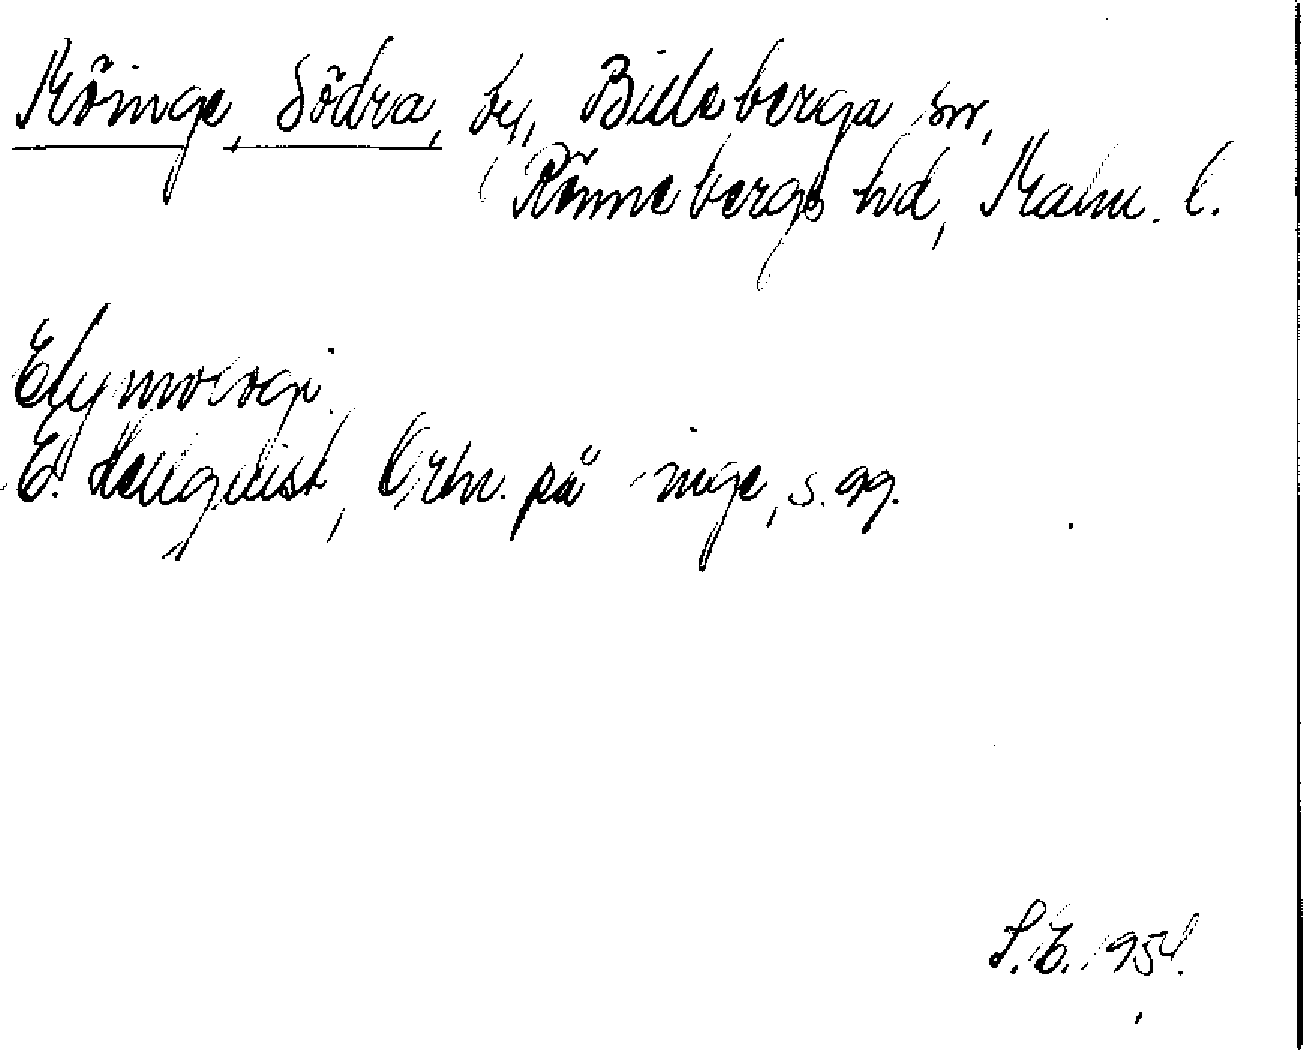 Möinge, Södra, by, Billeberga sn,
Rönnebergs hd, Malm. l.
Etymologi.
E. Hellquist, Ortn. på -inge, s. 99.
S.E. 1954.